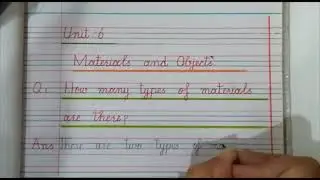 Unit-6
Materials and Objects
Q: How many types of materials
are there?
Ans there are two types of